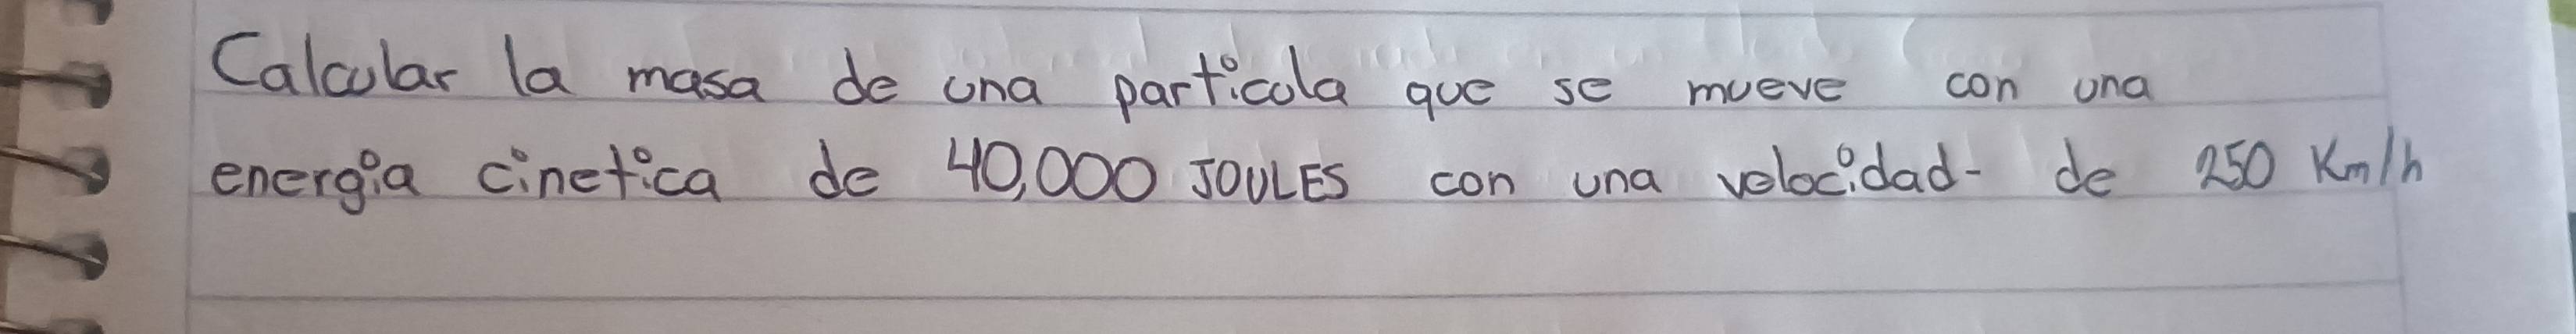 Calcular la masa de una particula que se mueve con una
energia cinetica de 40,000 JOULES con una velocidad- de 250 Km/h